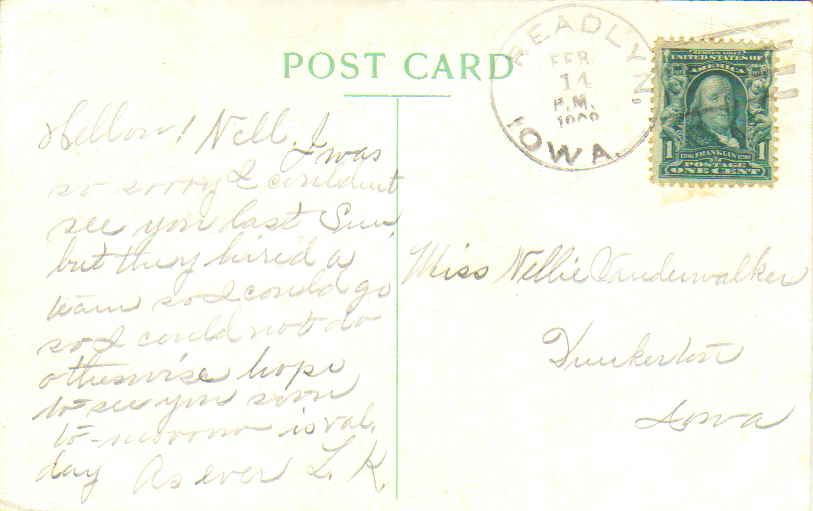 POST CARD
READLYN,
FEB
14
P.M.
IOWA.
UNITED STATES OF
AMERICA
1 FRANKLIN 1
POSTAGE
ONE CENT
Hellow! Nell. I was
so sorry I couldnt
see you last Sun,
but they hired a
team so I could go
so I could not do
otherwise hope
to see you soon
to-morrow is val.
day As ever L. K.
Miss Nellie Vanderwalker
Dunkerton
Iowa